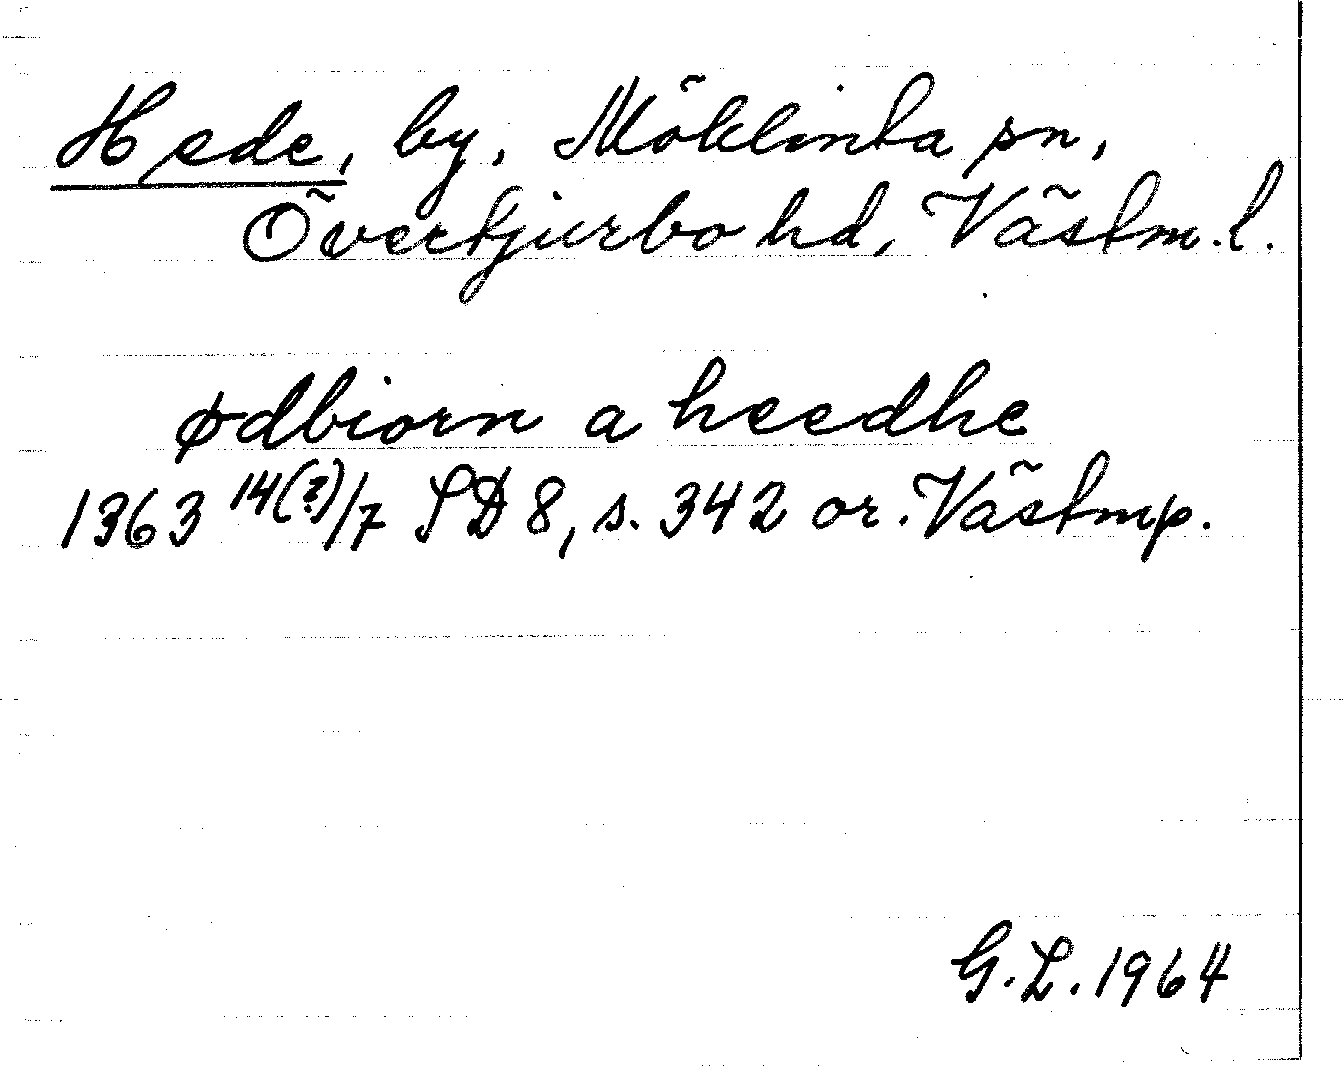 Hede, by, Möklinta sn,
Övertjurbo hd, Västm.l.
ødbiorn a heedhe
1363 14(?)/7 SD 8, s. 342 or. Västmp.
G.L. 1964